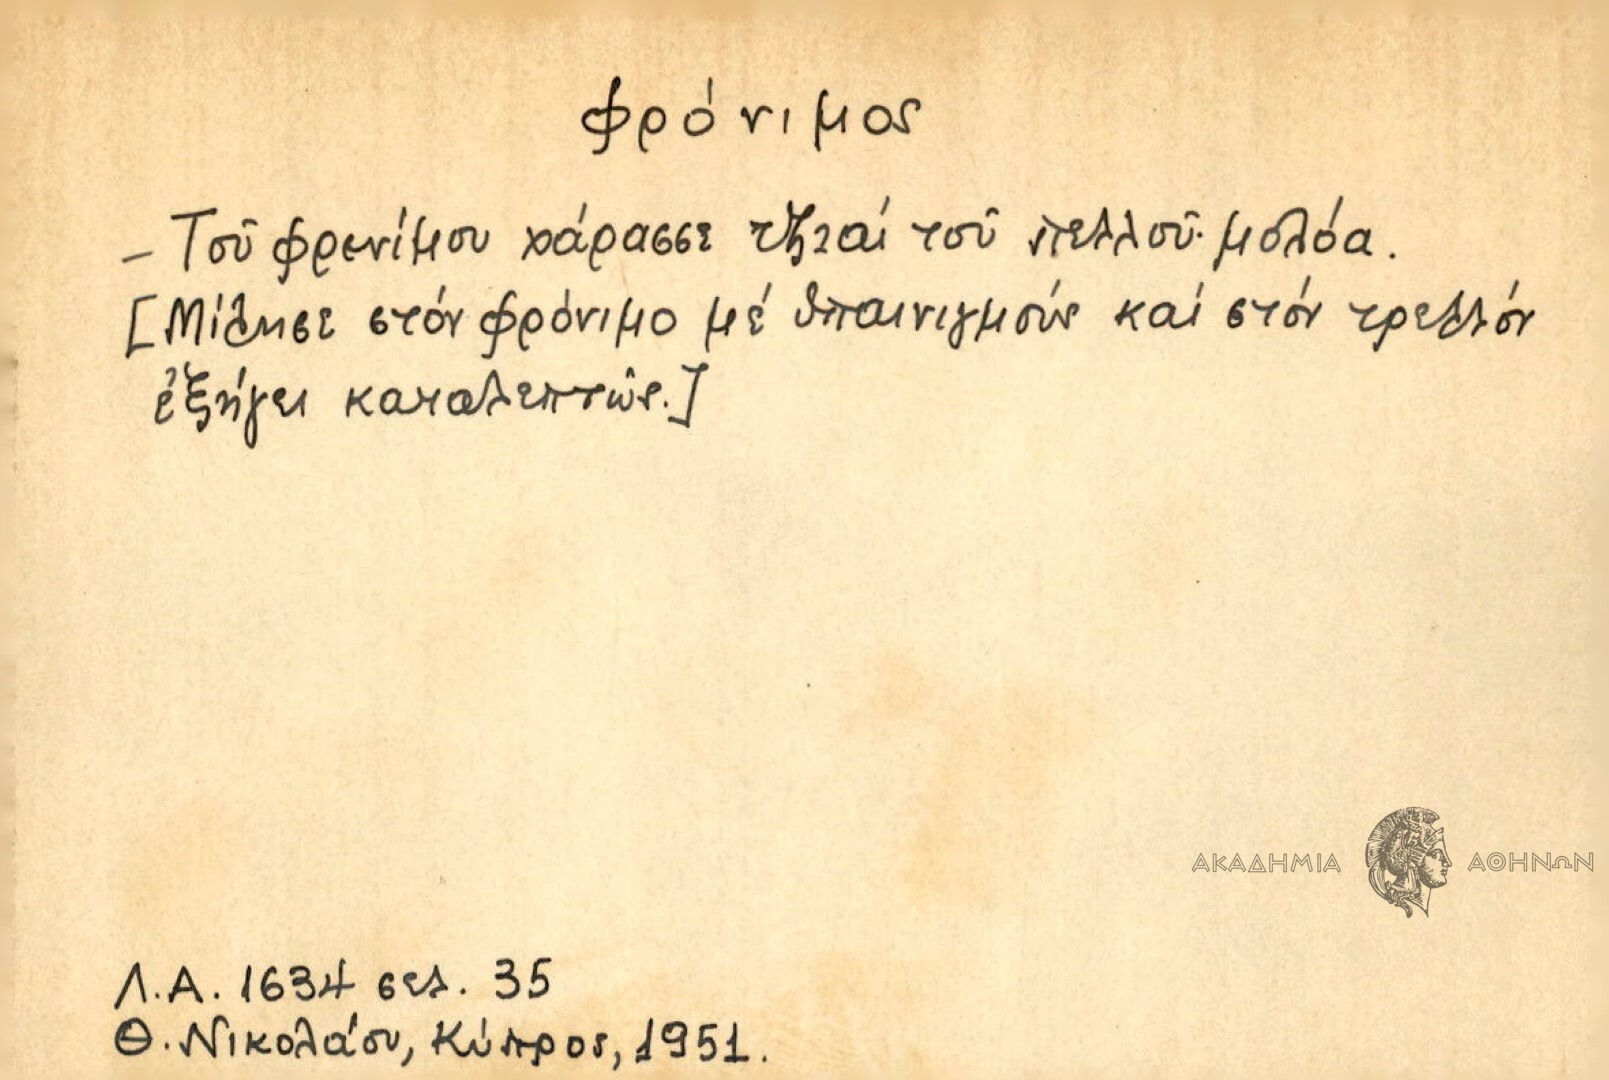 φρόνιμος
- Τοῦ φρενίμου χάρασσε τζ̆ιαί τοῦ πελλοῦ μολόα.
[Μίλησε στόν φρόνιμο μέ ὑπαινιγμούς καί στόν τρελλόν
ἐξήγει καταλεπτῶς.]
ΑΚΑΔΗΜΙΑ ΑΘΗΝΩΝ
Λ.Α. 1634 σελ. 35
Θ. Νικολάου, Κύπρος, 1951.